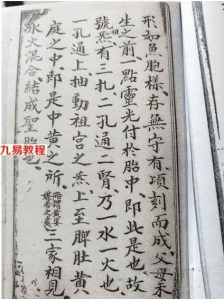 形如魚胞樣存無守有頃刻而成父母未
生之前一點靈光付於胎中即此是也故
號炁有三孔二孔通二腎乃一水一火也
一孔通上抽動祖宮之炁上至脾肚黃
庭之中即是中黃之所二家相見
水火混合結成聖胎也
九易教程